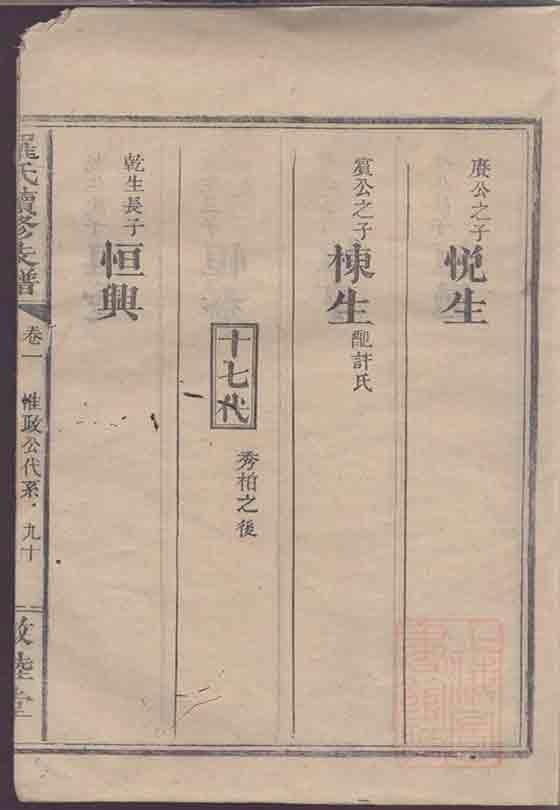 賡公之子
悅生
賓公之子
棟生
配許氏
十七代
秀柏之後
乾生長子
恒興
羅氏續修支譜
卷一
惟政公代系
九十
敦陸堂